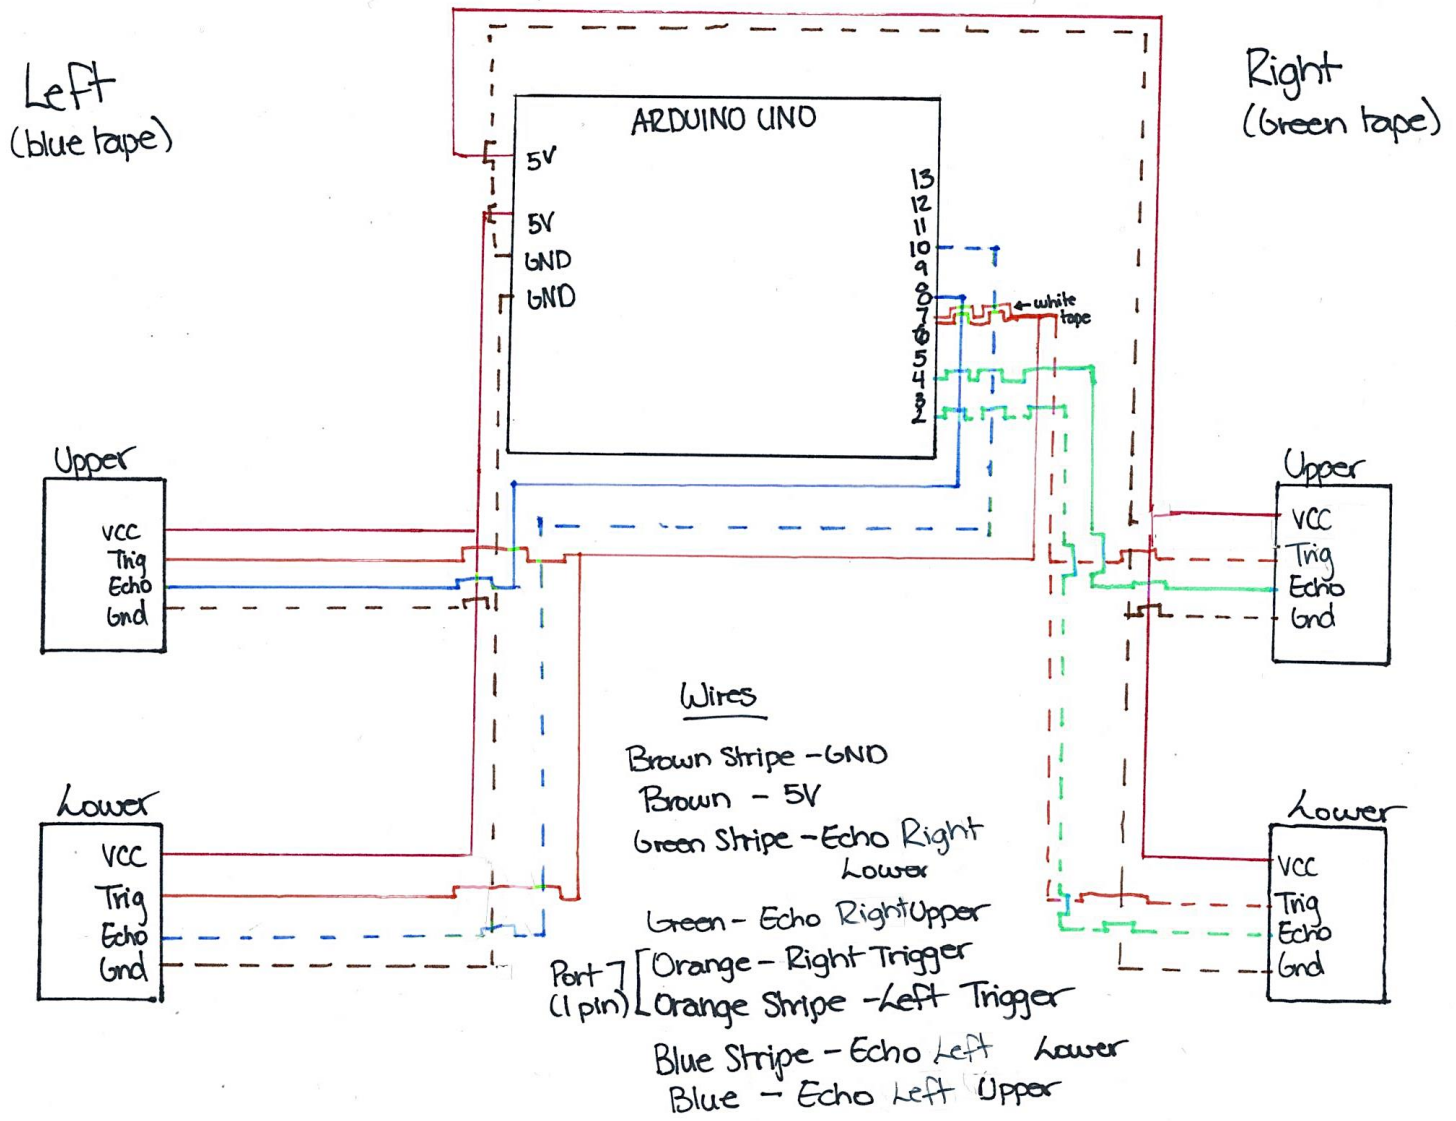 Left
(blue tape)
Right
(Green tape)
ARDUINO UNO
5V
5V
GND
GND
13
12
11
10
9
8
7
6
5
4
3
2
←white
tape
Upper
VCC
Trig
Echo
Gnd
Lower
VCC
Trig
Echo
Gnd
Upper
VCC
Trig
Echo
Gnd
Lower
VCC
Trig
Echo
Gnd
Wires
Brown Stripe - GND
Brown - 5V
Green Stripe - Echo Right
Lower
Green - Echo Right Upper
Port 7
(1 pin)
Orange - Right Trigger
Orange Stripe - Left Trigger
Blue Stripe - Echo Left Lower
Blue - Echo Left Upper